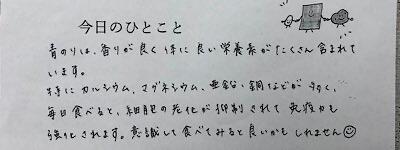 今日のひとこと
青のりは、香りが良く体に良い栄養素がたくさん含まれて
います。
特にカルシウム、マグネシウム、亜鉛、銅などが多く、
毎日食べると、細胞の老化が抑制されて免疫力も
強化されます。意識して食べてみると良いかもしれません